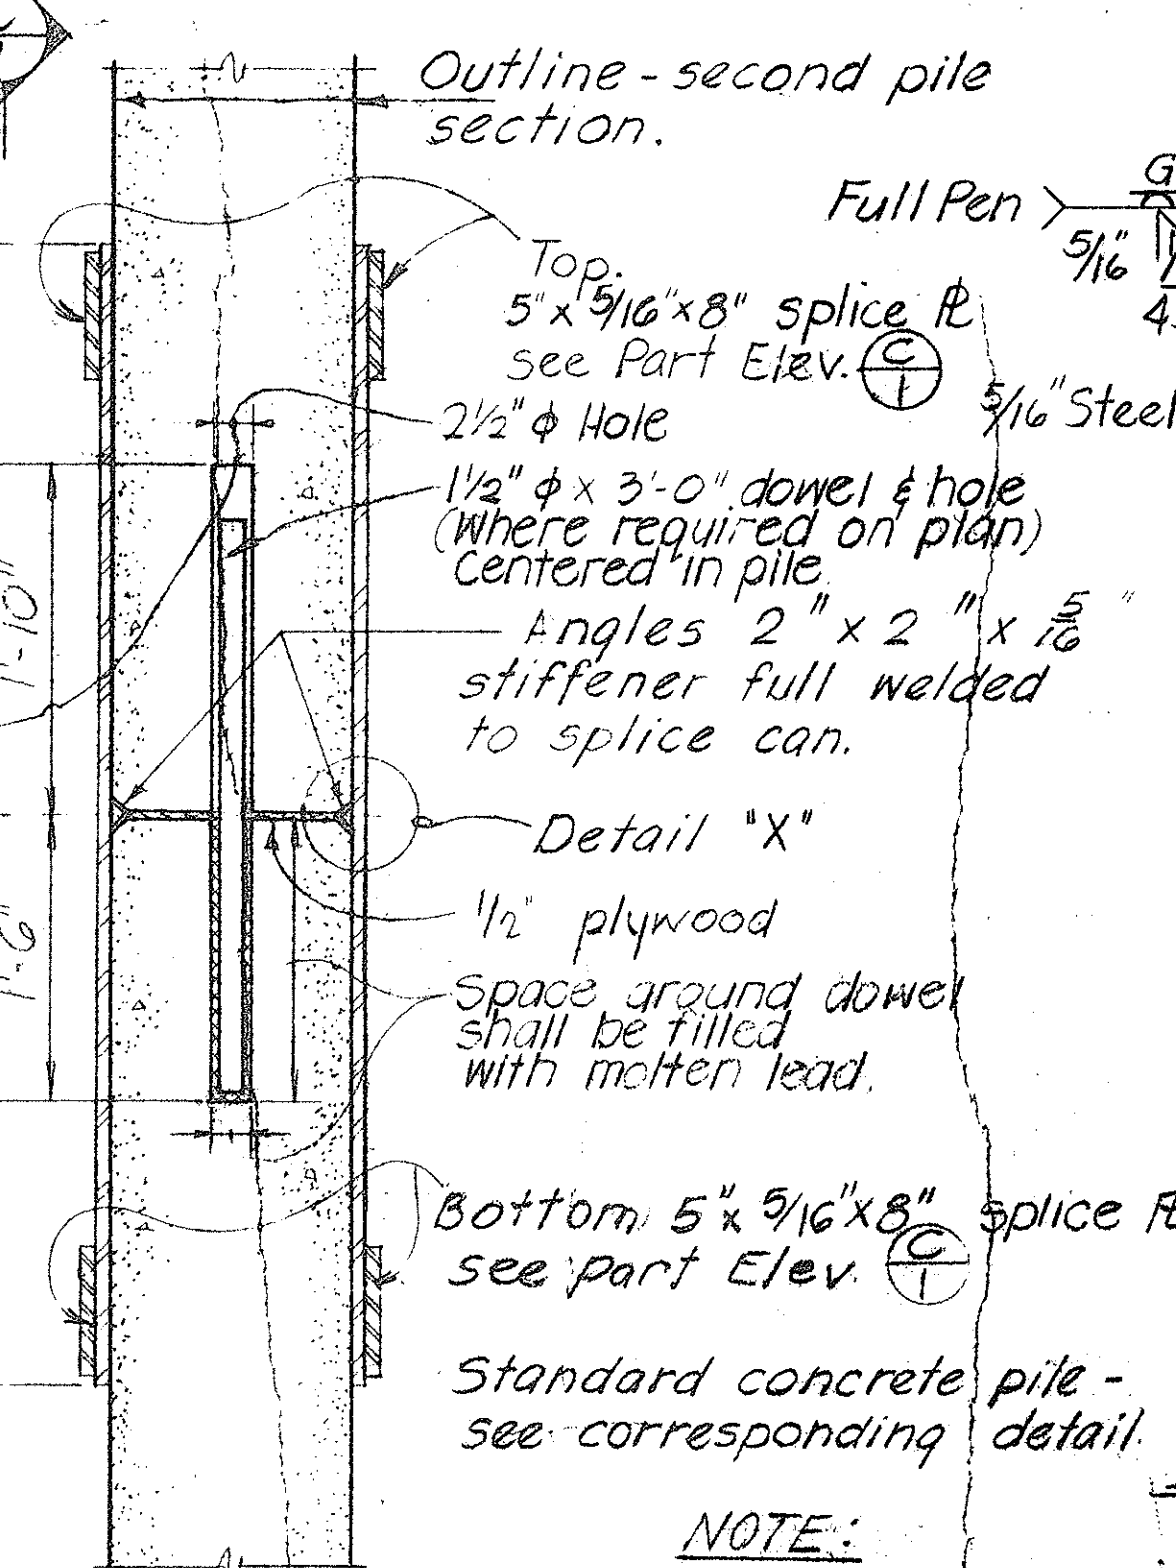 Outline - second pile
section.
Full Pen
G
5/16"
Top.
5" x 5/16" x 8" splice ℄
see Part Elev. C
1
5/16" Steel
2 1/2" ϕ Hole
1 1/2" ϕ x 3'-0" dowel & hole
(Where required on plan)
Centered in pile
Angles 2 " x 2 " x 5/16 "
stiffener full welded
to splice can.
1'-10"
Detail "X"
1/2" plywood
1'-6"
Space around dowel
shall be filled
with molten lead.
Bottom 5" x 5/16" x 8" splice
see part Elev. C
1
Standard concrete pile -
see corresponding detail.
NOTE: